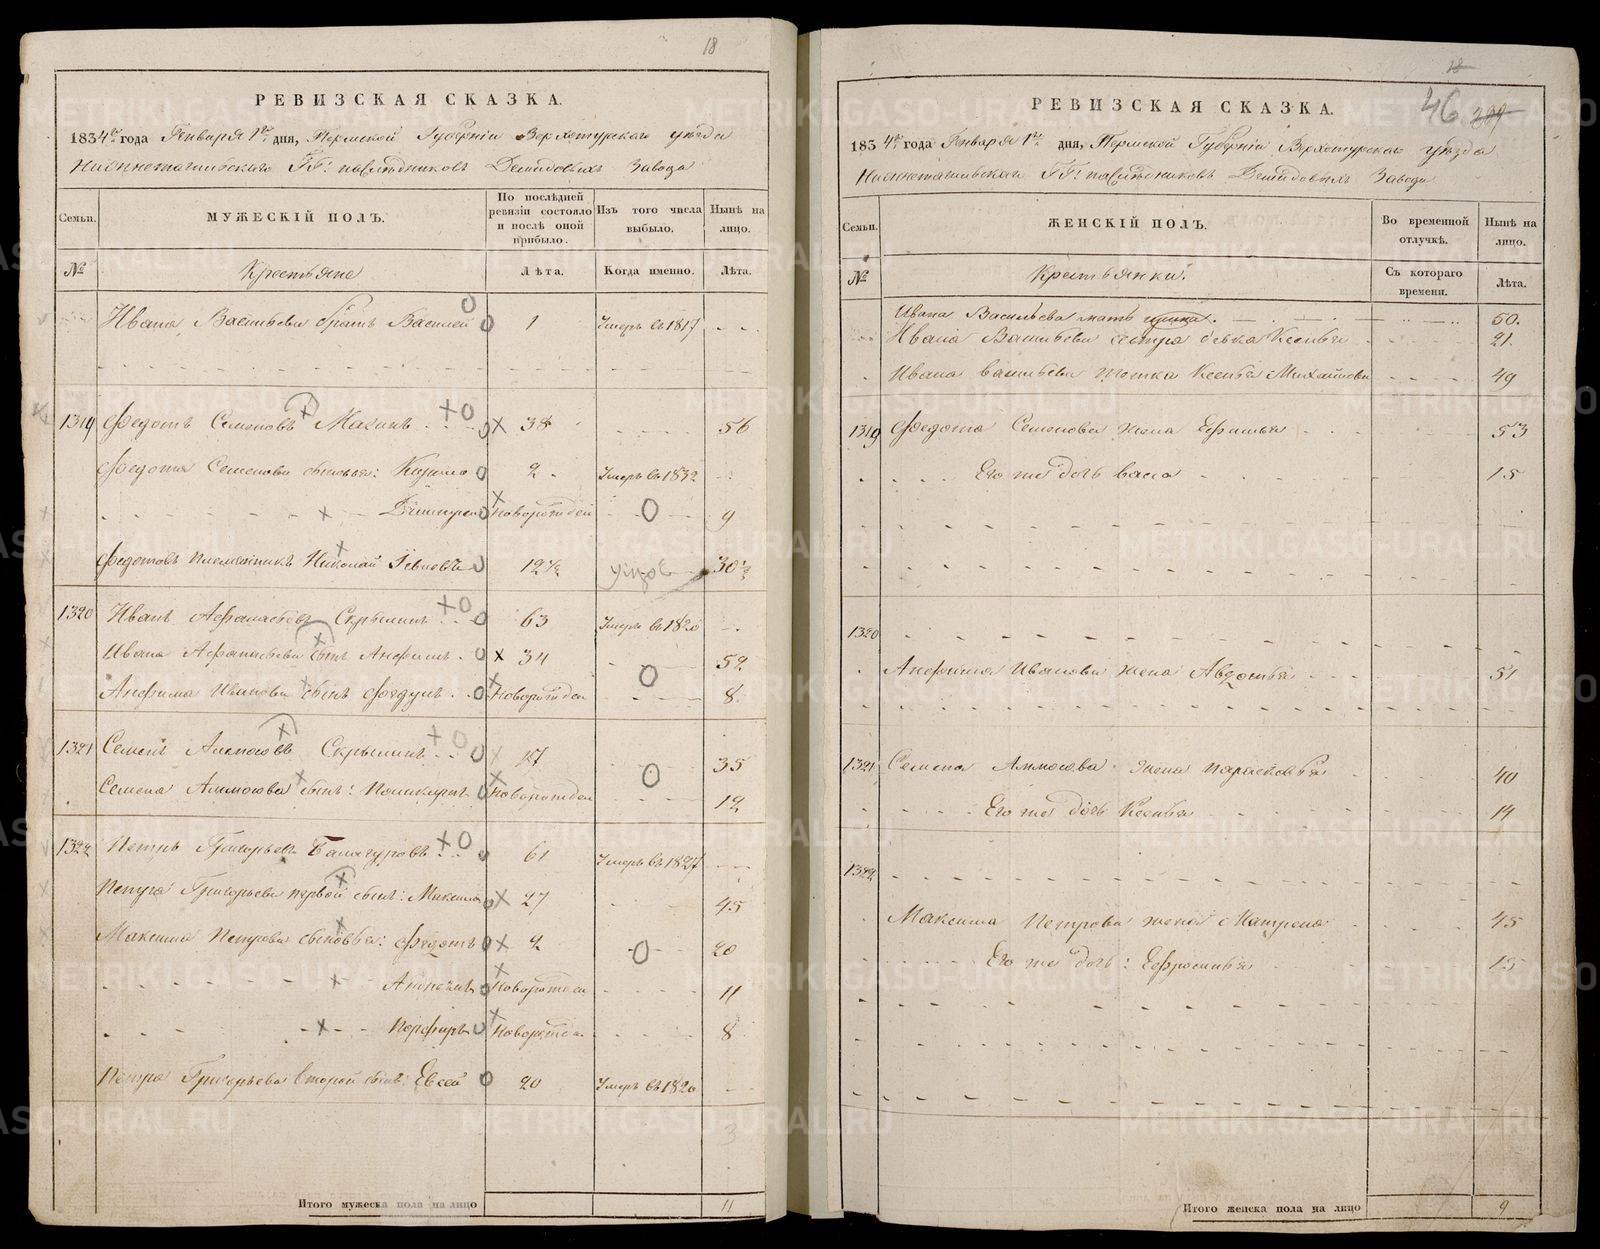 18
РЕВИЗСКАЯ СКАЗКА.
1834го года Января 1го дня, Пермской Губерніи Верхотурскаго уѣзда
Нижнетагильскаго ГГ: наслѣдниковъ Демидовыхъ Завода
Семьи.
МУЖЕСКІЙ ПОЛЪ.
По послѣдней ревизіи состояло и послѣ оной прибыло.
Изъ того числа выбыло.
Нынѣ на лицо.
№
Крестьяне
Лѣта.
Когда именно.
Лѣта.
Ивана Васильева братъ Василей 1 Умеръ въ 1817
1319 Федотъ Семеновъ 38 56
Федота Семенова сыновья: 2 Умеръ въ 1832
Новорожден 9
Федотовъ племянникъ Николай 12½ 30½
1320 Иванъ Афанасьевъ Скрылинъ 63 Умеръ въ 1820
Ивана Афанасьева сынъ Анфимъ 34 52
Анфима Иванова сынъ Новорожден 8
1321 Семенъ Аммосовъ Скрылинъ 17 35
Семена Аммосова сынъ: Новорожден 12
1322 Петръ Григорьевъ Балагуровъ 61 Умеръ въ 1827
Петра Григорьева первой сынъ: Максимъ 27 45
Максима Петрова сыновья: Федотъ 2 20
Новорожден 11
Порфиръ Новорожден 8
Петра Григорьева второй сынъ: Евсей 20 Умеръ въ 1820
3
Итого мужеска пола на лицо 11
18
46
РЕВИЗСКАЯ СКАЗКА.
1834го года Января 1го дня, Пермской Губерніи Верхотурскаго уѣзда
Нижнетагильскаго ГГ: наслѣдниковъ Демидовыхъ Завода
Семьи.
ЖЕНСКІЙ ПОЛЪ.
Во временной отлучкѣ.
Нынѣ на лицо.
№
Крестьянки.
Съ котораго времени.
Лѣта.
Ивана Васильева мать 50.
Ивана Васильева сестра девка Ксенья 21.
Ивана Васильева тотка Ксенья Михайлова 49
1319 Федота Семенова жена Ефимья 53
Его же дочь Васа 15
1320
Анфима Иванова жена Авдотья 51
1321 Семена Аммосова жена Парасковья 40
Его же дочь Ксенья 14
1322
Максима Петрова жена Катрена 45
Его же дочь: Ефросинья 15
Итого женска пола на лицо 9
METRIKI.GASO-URAL.RU